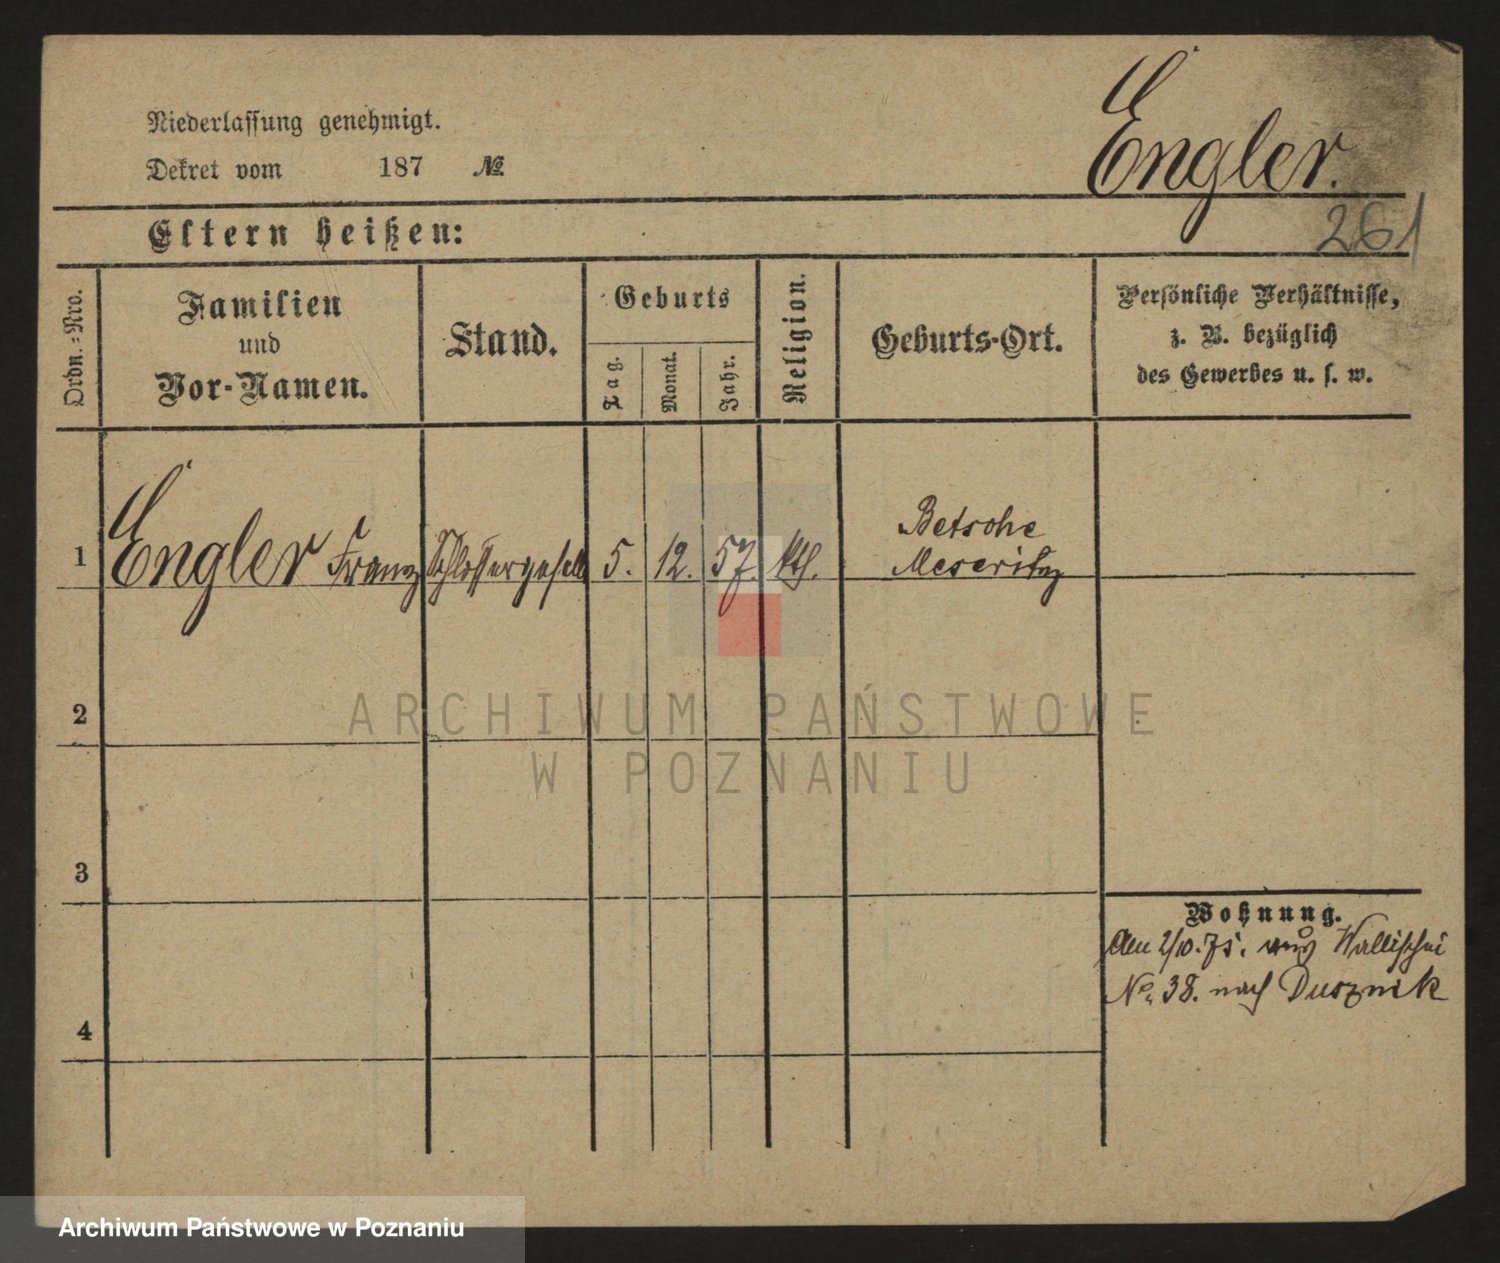 Niederlassung genehmigt.
Dekret vom 187 №
Engler.
261
Eltern heißen:
Ordn.-Nro.
Familien
und
Vor-Namen.
Stand.
Geburts
Tag.
Monat.
Jahr.
Religion.
Geburts-Ort.
Persönliche Verhältnisse,
z. B. bezüglich
des Gewerbes u. s. w.
1 Engler Franz Schlossergesell 5. 12. 57. kth. Betsche
Meseritz
ARCHIWUM PAŃSTWOWE
W POZNANIU
2
3
4
Wohnung.
Am 2/10.75. von Wallischei
No. 38. nach Dusznik
Archiwum Państwowe w Poznaniu